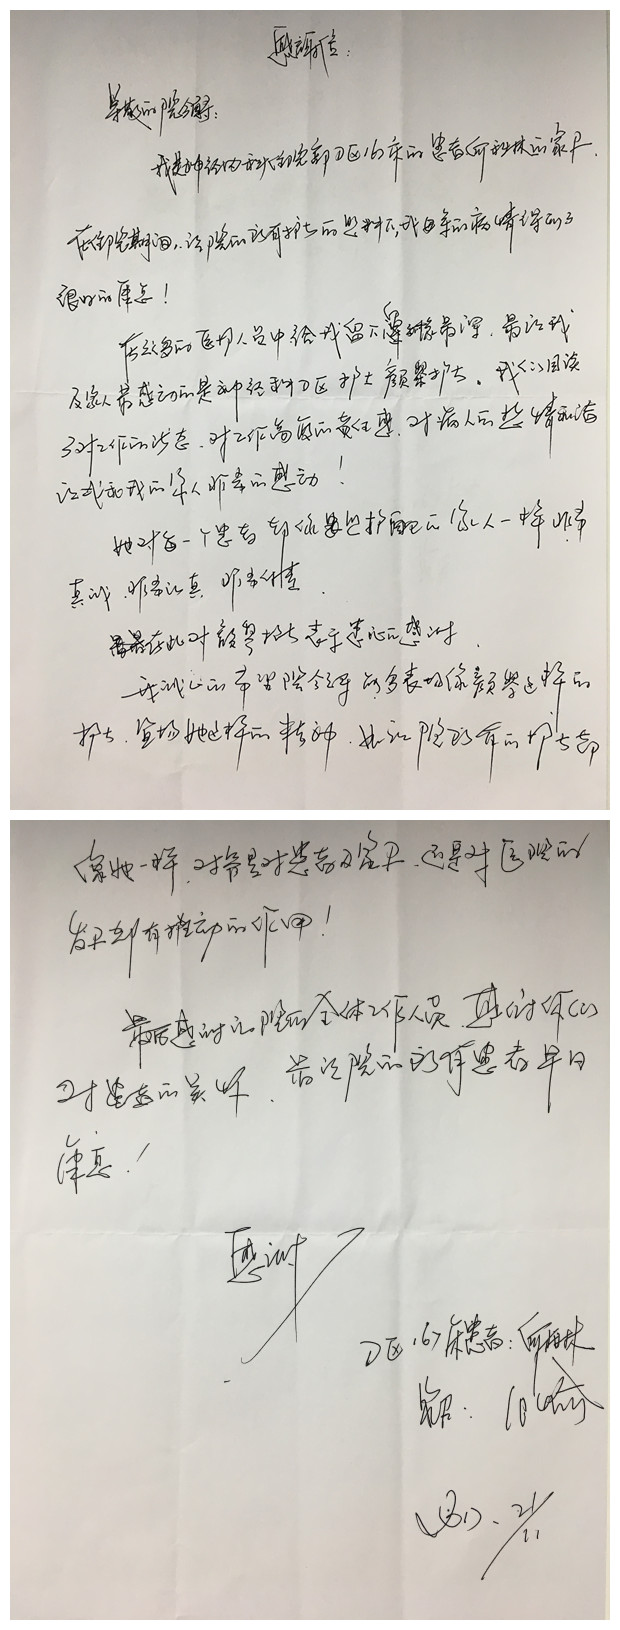 感谢信:
尊敬的院领导:
我是神经内科住院部D区167床的患者何 林的家属.
在住院期间,该院的所有护士的照料下,我母亲的病情得到了
很好的康复!
在众多的医护人员中给我留下印象最深,最让我
及家人最感动的是神经科D区护士颜翠护士。我们目读
了对工作的状态,对工作高度的责任感,对病人的热情和活
让我和我的家人非常的感动!
她对每一个患者都像照护自己的家人一样非常
真诚,非常认真,非常仔细
最在此对颜翠护士表示衷心的感谢.
我诚心的希望院领导 多表扬像颜翠这样的
护士,宣扬她这样的精神,让让院所有的护士都
像她一样,对 是对患者及家属,还是对医院的
发展都有推动的作用!
最后感谢 院的全体工作人员,感谢你们
对患者的关怀,最 院的所有患者早日
康复!
感谢
D区167床患者:何 林
家属:
21/11